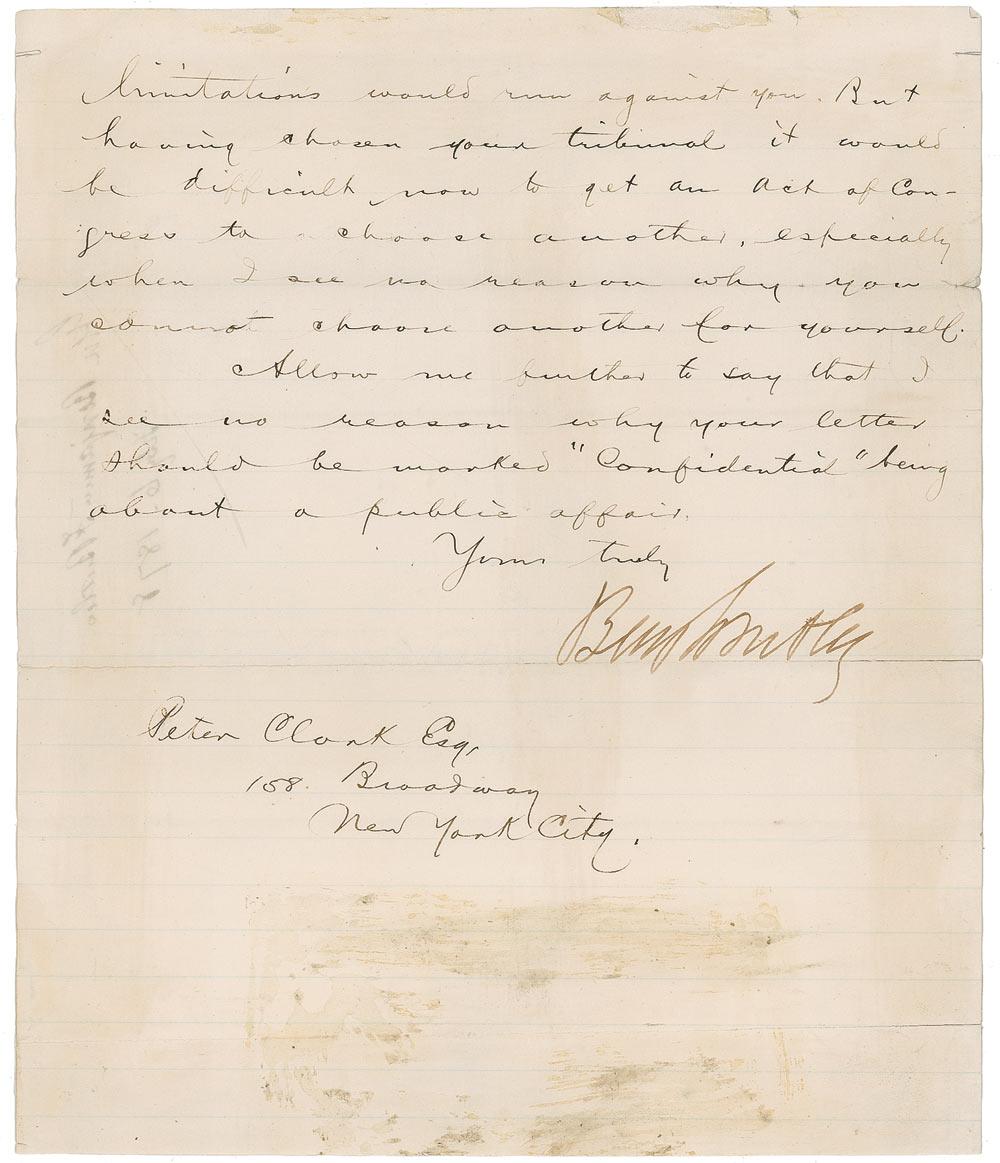 limitations would run against you. But
having chosen your tribunal it would
be difficult now to get an Act of Con-
gress to choose another, especially
when I see no reason why you
cannot choose another for yourself.
Allow me further to say that I
see no reason why your letter
should be marked "Confidential" being
about a public affair.
Yours truly
Benj F Butler
Peter Clark Esq,
158. Broadway
New York City.